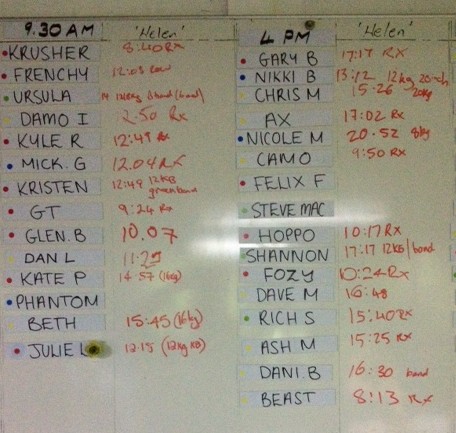 9.30 AM 'Helen'
KRUSHER 8:40 RX
FRENCHY 12:03
URSULA
DAMO I 2.50 Rx
KYLE R 12:49 Rx
MICK. G 12.04 RX
KRISTEN 12:49 12KB
green band
GT 9:24 Rx
GLEN. B 10.07
DAN L 11:29
KATE P 14:57 (16kg)
PHANTOM
BETH 15:45 (16kg)
JULIE L 13:15 (12kg KB)
4 PM 'Helen'
GARY B 17:17 RX
NIKKI B 13:12 12kg
CHRIS M 15:26 20kg
AX 17:02 Rx
NICOLE M 20.52 8kg
CAMO 9:50 Rx
FELIX F
STEVE MAC
HOPPO 10:17 Rx
SHANNON 17:17 12KB/band
FOZY 10:24 Rx
DAVE M 16:48
RICH S 15:40 Rx
ASH M 15:25 RX
DANI. B 16:30 band
BEAST 8:13 Rx